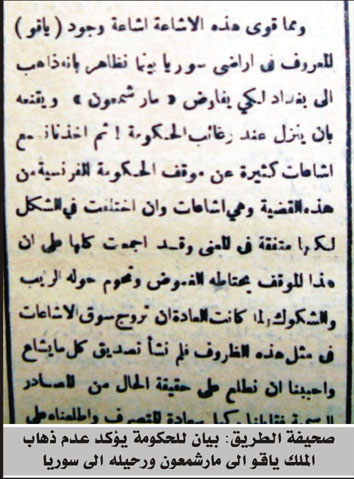 ومما قوى هذه الاشاعة اشاعة وجود ( ياقو )
المعروف فى اراضى سوريا بينما تظاهر بانه ذاهب
الى بغداد لكي يفاوض « مار شمعون » ويقنعه
بان ينزل عند رغائب الحكومة ! ثم اخذنا نسمع
اشاعات كثيرة عن موقف الحكومة الفرنسية من
هذه القضية وهي اشاعات وان اختلفت في الشكل
لكنها متفقة فى المعنى وقد اجمعت كلها على ان
هذا الموقف يحتاطه الغموض وتحوم حوله الريب
والشكوك ولما كانت العادة ان تروج سوق الاشاعات
فى مثل هذه الظروف فلم نشأ تصديق كل مايشاع
واحببنا ان نطلع على حقيقة الحال من المصادر
سعادة المتصرف واطلعناه على
صحيفة الطريق: بيان للحكومة يؤكد عدم ذهاب
الملك ياقو الى مارشمعون ورحيله الى سوريا